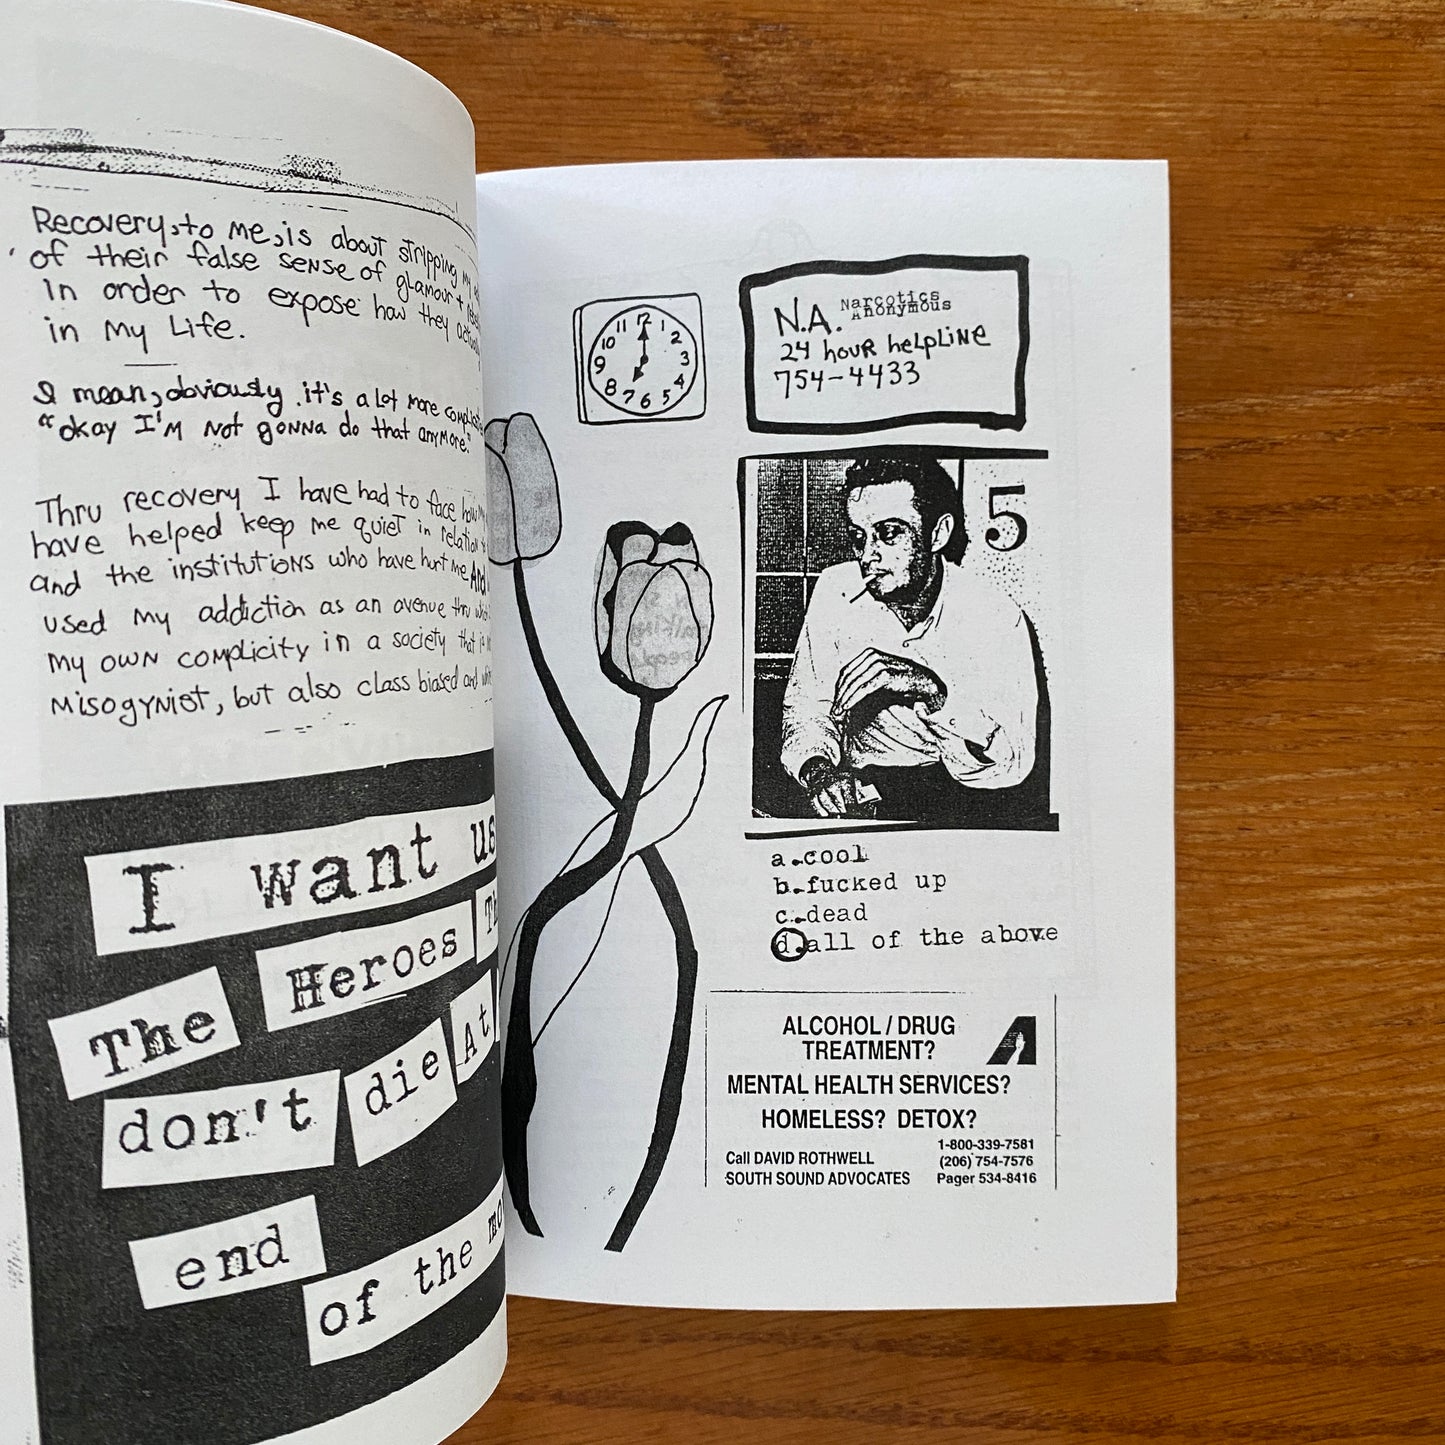 Recovery, to me, is about stripping my
of their false sense of glamour +
in order to expose how they actually
in my Life.
I mean, obviously it's a lot more
"okay I'm not gonna do that anymore."
Thru recovery I have had to face how
have helped keep me quiet in relation
and the institutions who have hurt me And
used my addiction as an avenue thru
my own complicity in a society that is
misogynist, but also class biased and
I want us
The Heroes
don't die At
end
of the
12 1 2 3 4 5 6 7 8 9 10 11
N.A. Narcotics
Anonymous
24 hour helpline
754-4433
5
a. cool
b. fucked up
c. dead
d. all of the above
ALCOHOL / DRUG
TREATMENT?
MENTAL HEALTH SERVICES?
HOMELESS? DETOX?
Call DAVID ROTHWELL
SOUTH SOUND ADVOCATES
1-800-339-7581
(206) 754-7576
Pager 534-8416